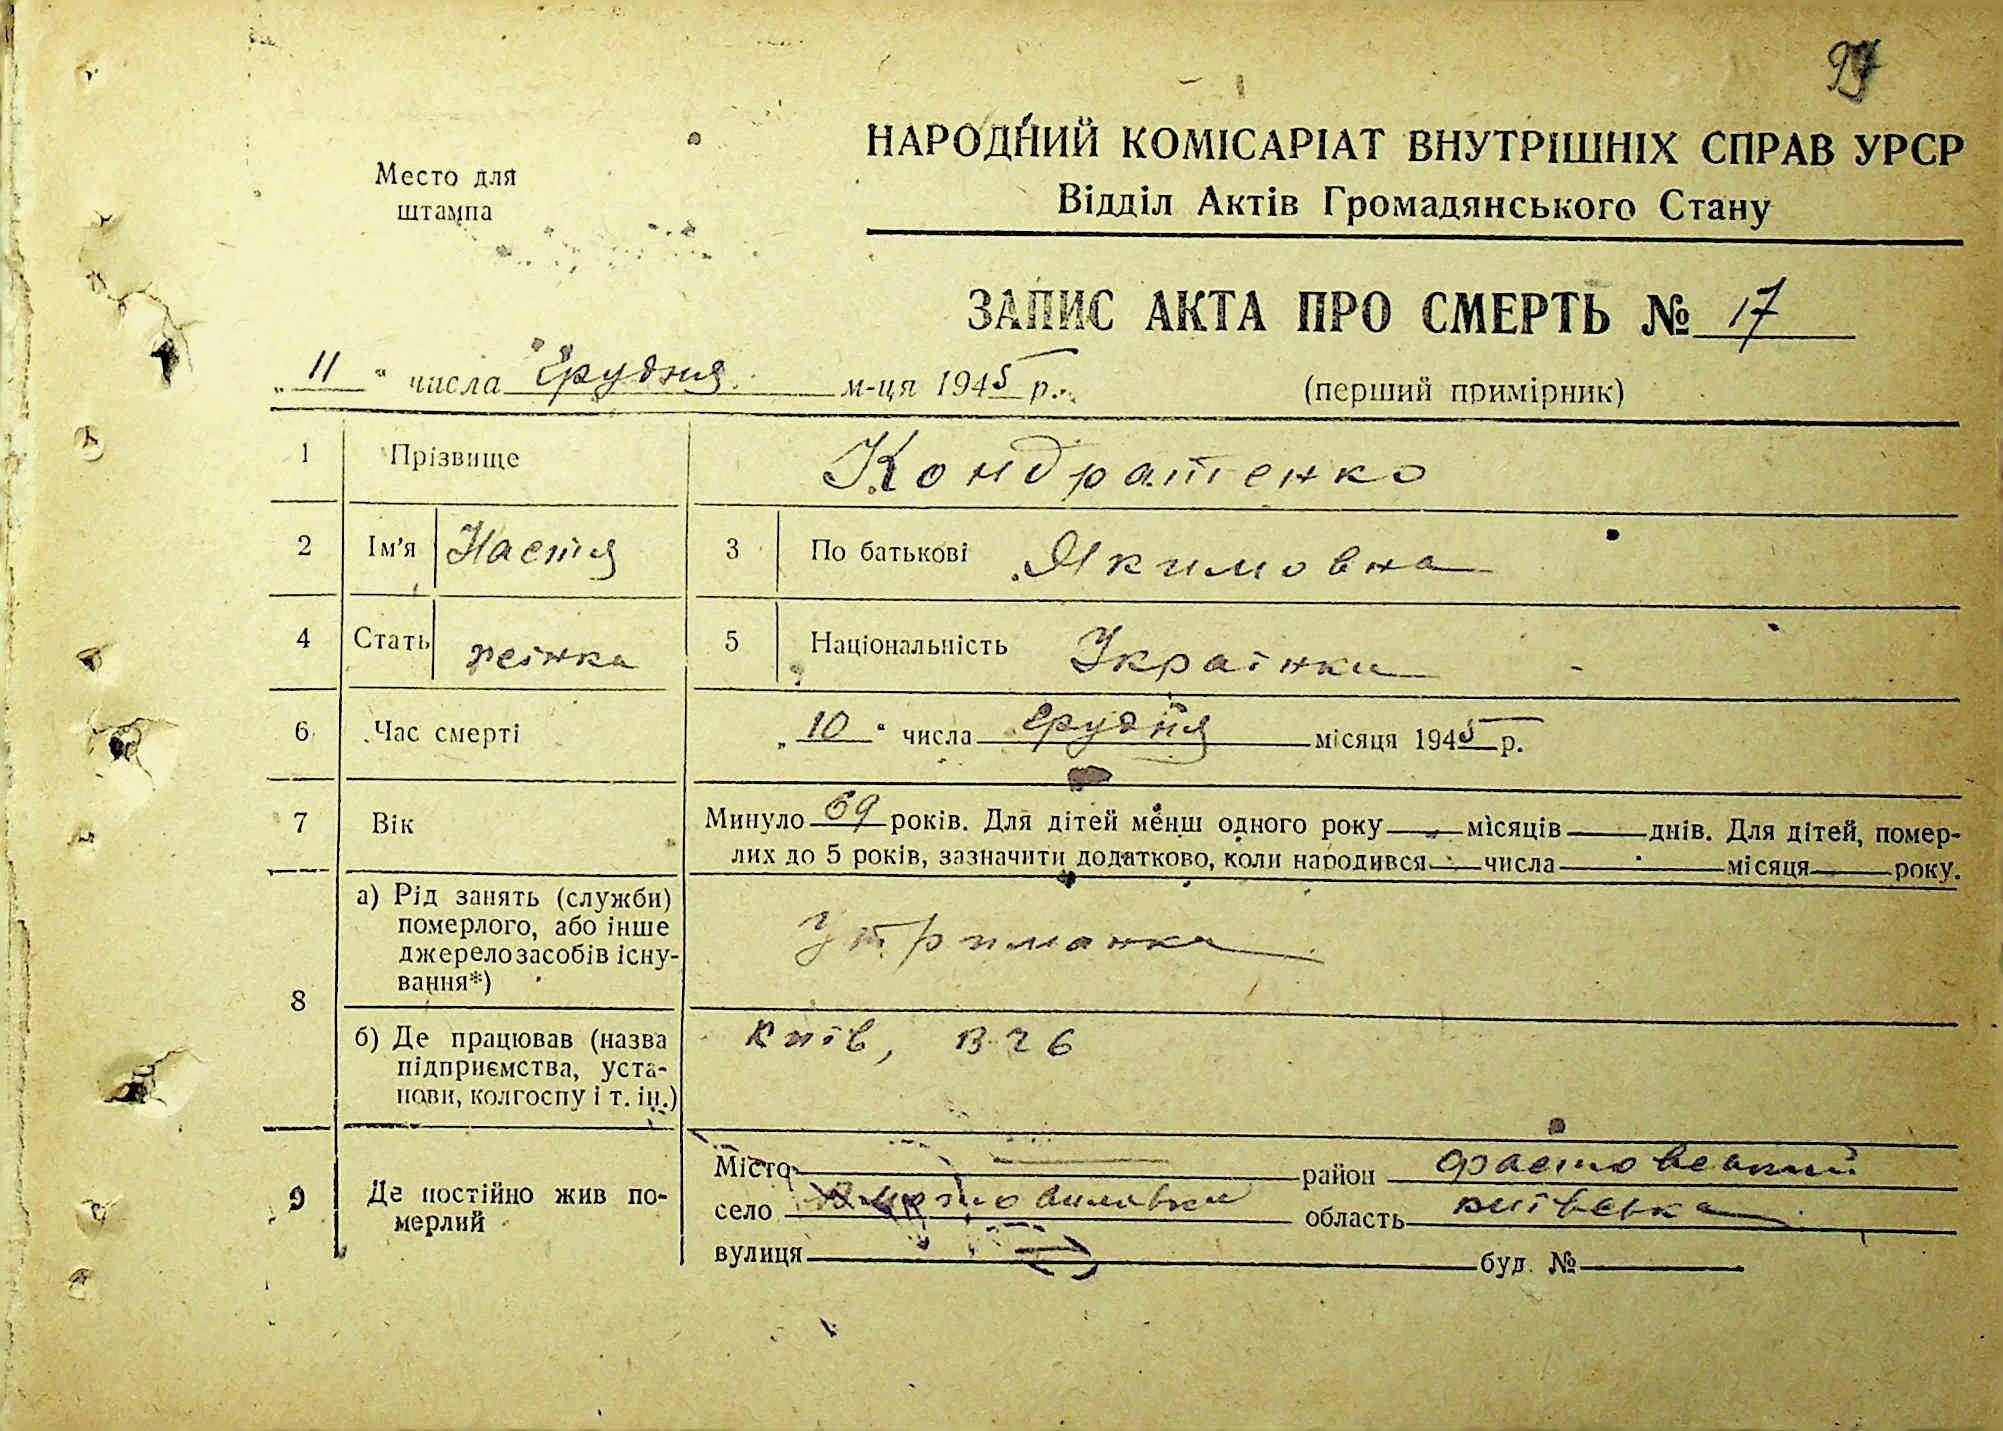 НАРОДНИЙ КОМІСАРІАТ ВНУТРІШНІХ СПРАВ УРСР
Место для
штампа
Відділ Актів Громадянського Стану
ЗАПИС АКТА ПРО СМЕРТЬ № 17
„ 11 “ числа грудня м-ця 1945 р.
(перший примірник)
1 Прізвище Кондратенко
2 Ім'я Настя 3 По батькові Якимовна
4 Стать жінка 5 Національність Українка
6 Час смерті „ 10 “ числа грудня місяця 1945 р.
7 Вік Минуло 69 років. Для дітей менш одного року місяців днів. Для дітей, помер-
лих до 5 років, зазначити додатково, коли народився числа місяця року.
8 а) Рід занять (служби)
померлого, або інше
джерело засобів існу-
вання*)
Утриманка
б) Де працював (назва
підприємства, уста-
нови, колгоспу і т. ін.)
Київ,
9 Де постійно жив по-
мерлий
Місто район фастовський
село область київська
вулиця буд. №